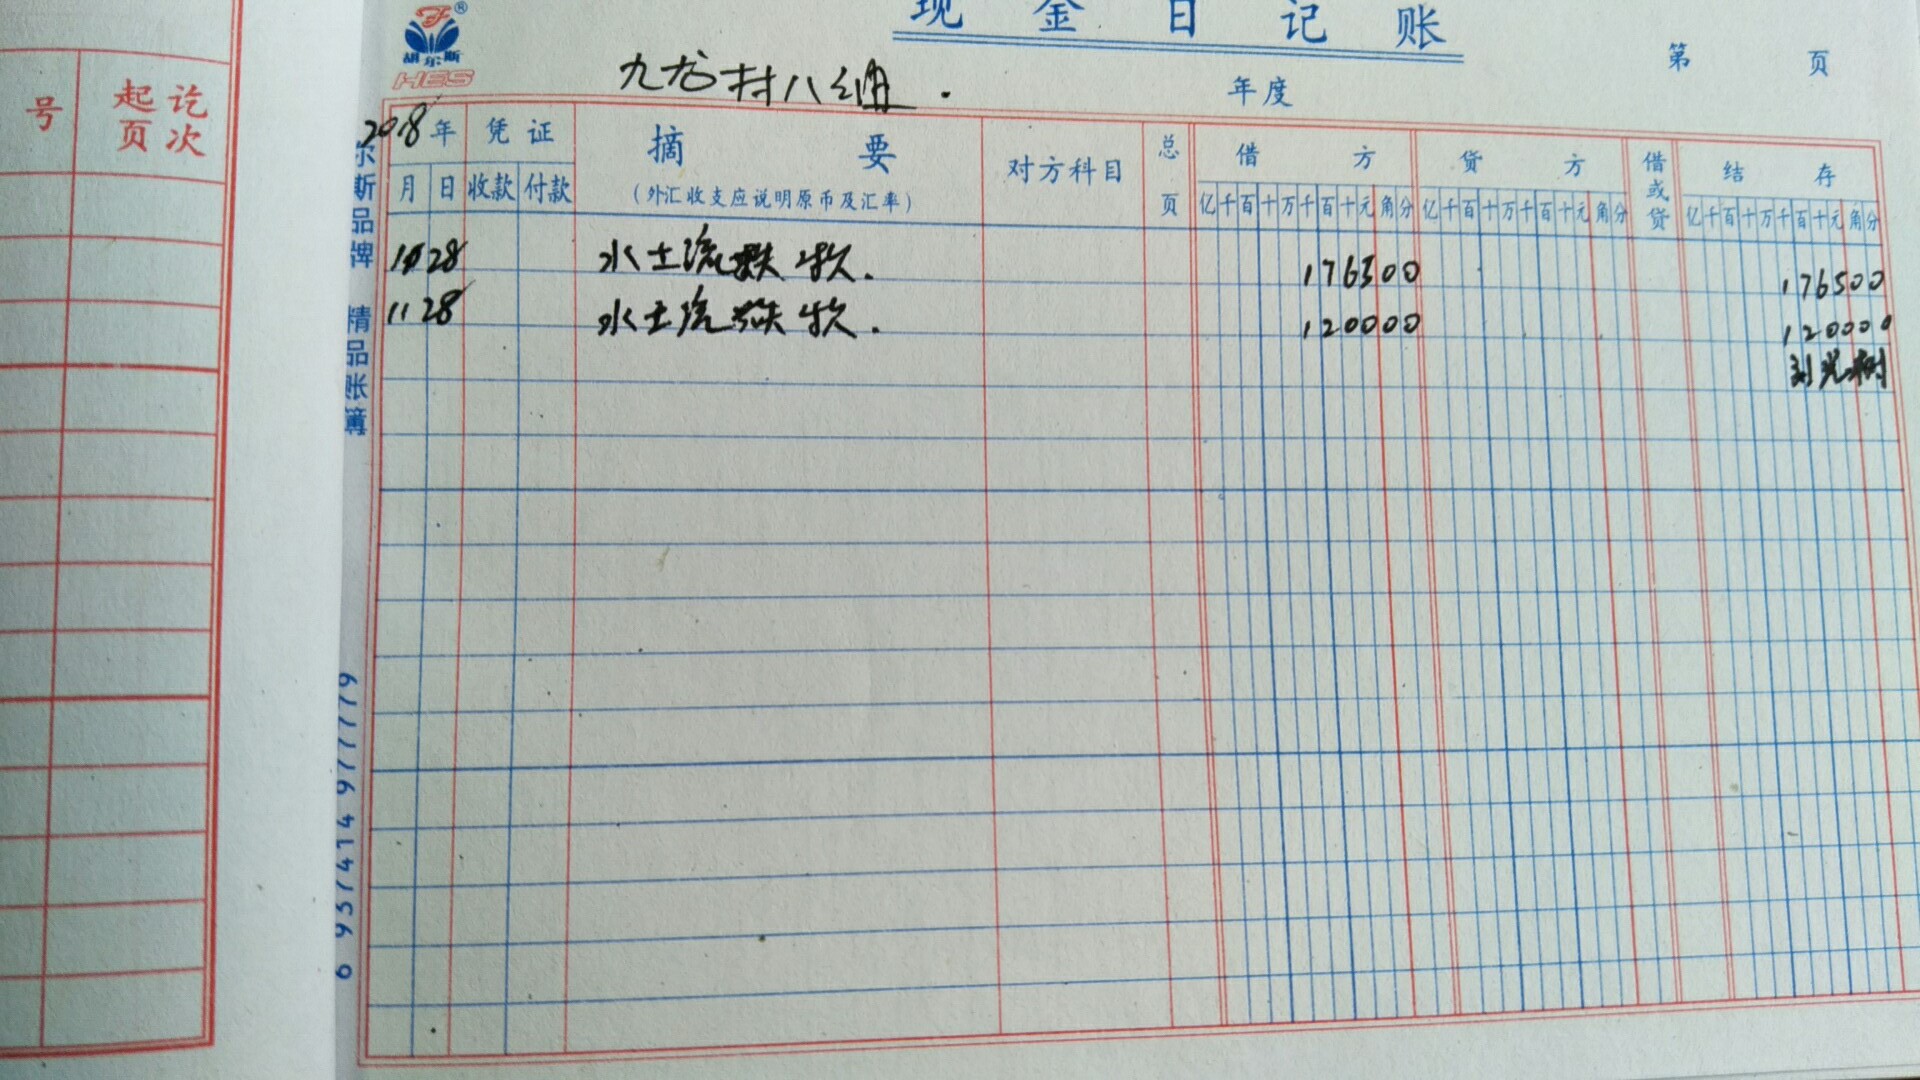 现金日记账
胡尔斯
HES
第 页
九龙村八组.
年度
号 起讫页次
2018年 凭证 摘要 对方科目 总页 借方 贷方 借或贷 结存
月 日 收款 付款 (外汇收支应说明原币及汇率) 亿千百十万千百十元角分 亿千百十万千百十元角分 亿千百十万千百十元角分
28 水土流 款. 176500 176500
11 28 水土流 款. 120000 120000
刘光树
尔斯品牌 精品账簿
6 937414 977779